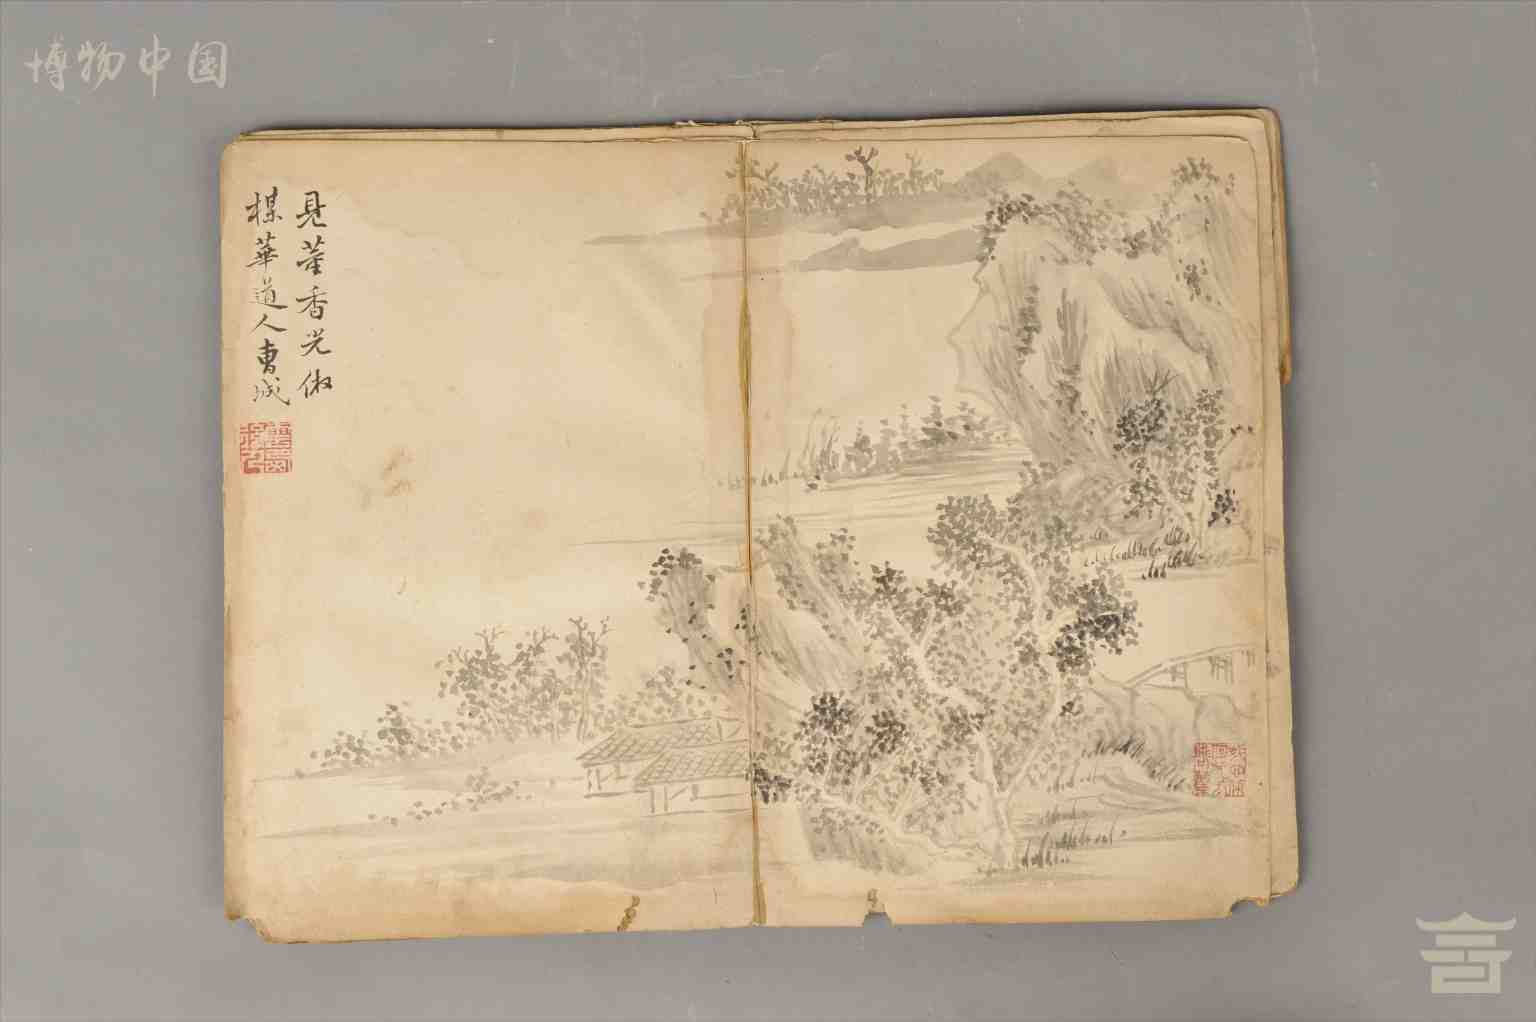 博物中国
見董香光俶
楳華道人曹城